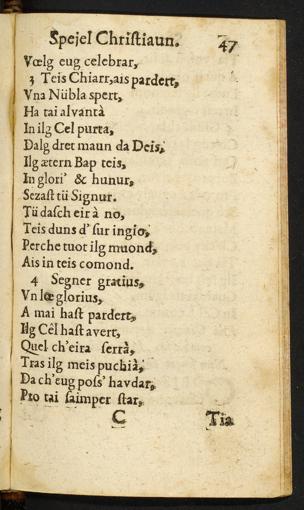 Spejel Christiaun. 47
Vœlg eug celebrar,
3 Teis Chiarr,ais pardert,
Vna Nübla spert,
Ha tai alvantà
In ilg Cel purta,
Dalg dret maun da Deis,
Ilg ætern Bap teis,
In glori' & hunur,
Sezast tü Signur.
Tü dasch eir à no,
Teis duns d' sur ingio,
Perche tuot ilg muond,
Ais in teis comond.
4 Segner gratius,
Vn lœ glorius,
A mai hast pardert,
Ilg Cêl hast avert,
Quel ch'eira serrà,
Tras ilg meis puchià,
Da ch'eug poss' havdar,
Pro tai saimper star,
C Tia